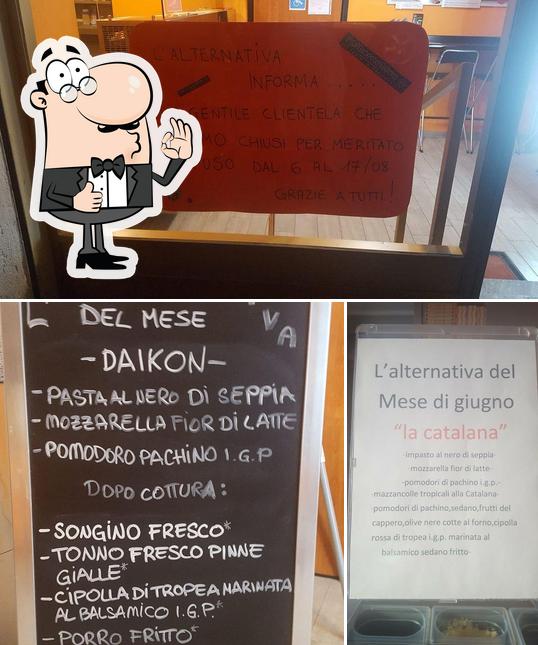 L'ALTERNATIVA
INFORMA.....
GENTILE CLIENTELA CHE
CHIUSI PER MERITATO
DAL 6 AL 17/08
GRAZIE A TUTTI!
DEL MESE
VA
-DAIKON-
-PASTA AL NERO DI SEPPIA
-MOZZARELLA FIOR DI LATTE
-POMODORO PACHINO I.G.P
DOPO COTTURA:
-SONGINO FRESCO*
-TONNO FRESCO PINNE
GIALLE*
-CIPOLLA DI TROPEA MARINATA
AL BALSAMICO I.G.P.*
-PORRO FRITTO*
L'alternativa del
Mese di giugno
"la catalana"
-impasto al nero di seppia-
-mozzarella fior di latte-
-pomodori di pachino i.g.p.-
-mazzancolle tropicali alla Catalana-
-pomodori di pachino,sedano,frutti del
cappero,olive nere cotte al forno,cipolla
rossa di tropea i.g.p. marinata al
balsamico sedano fritto-